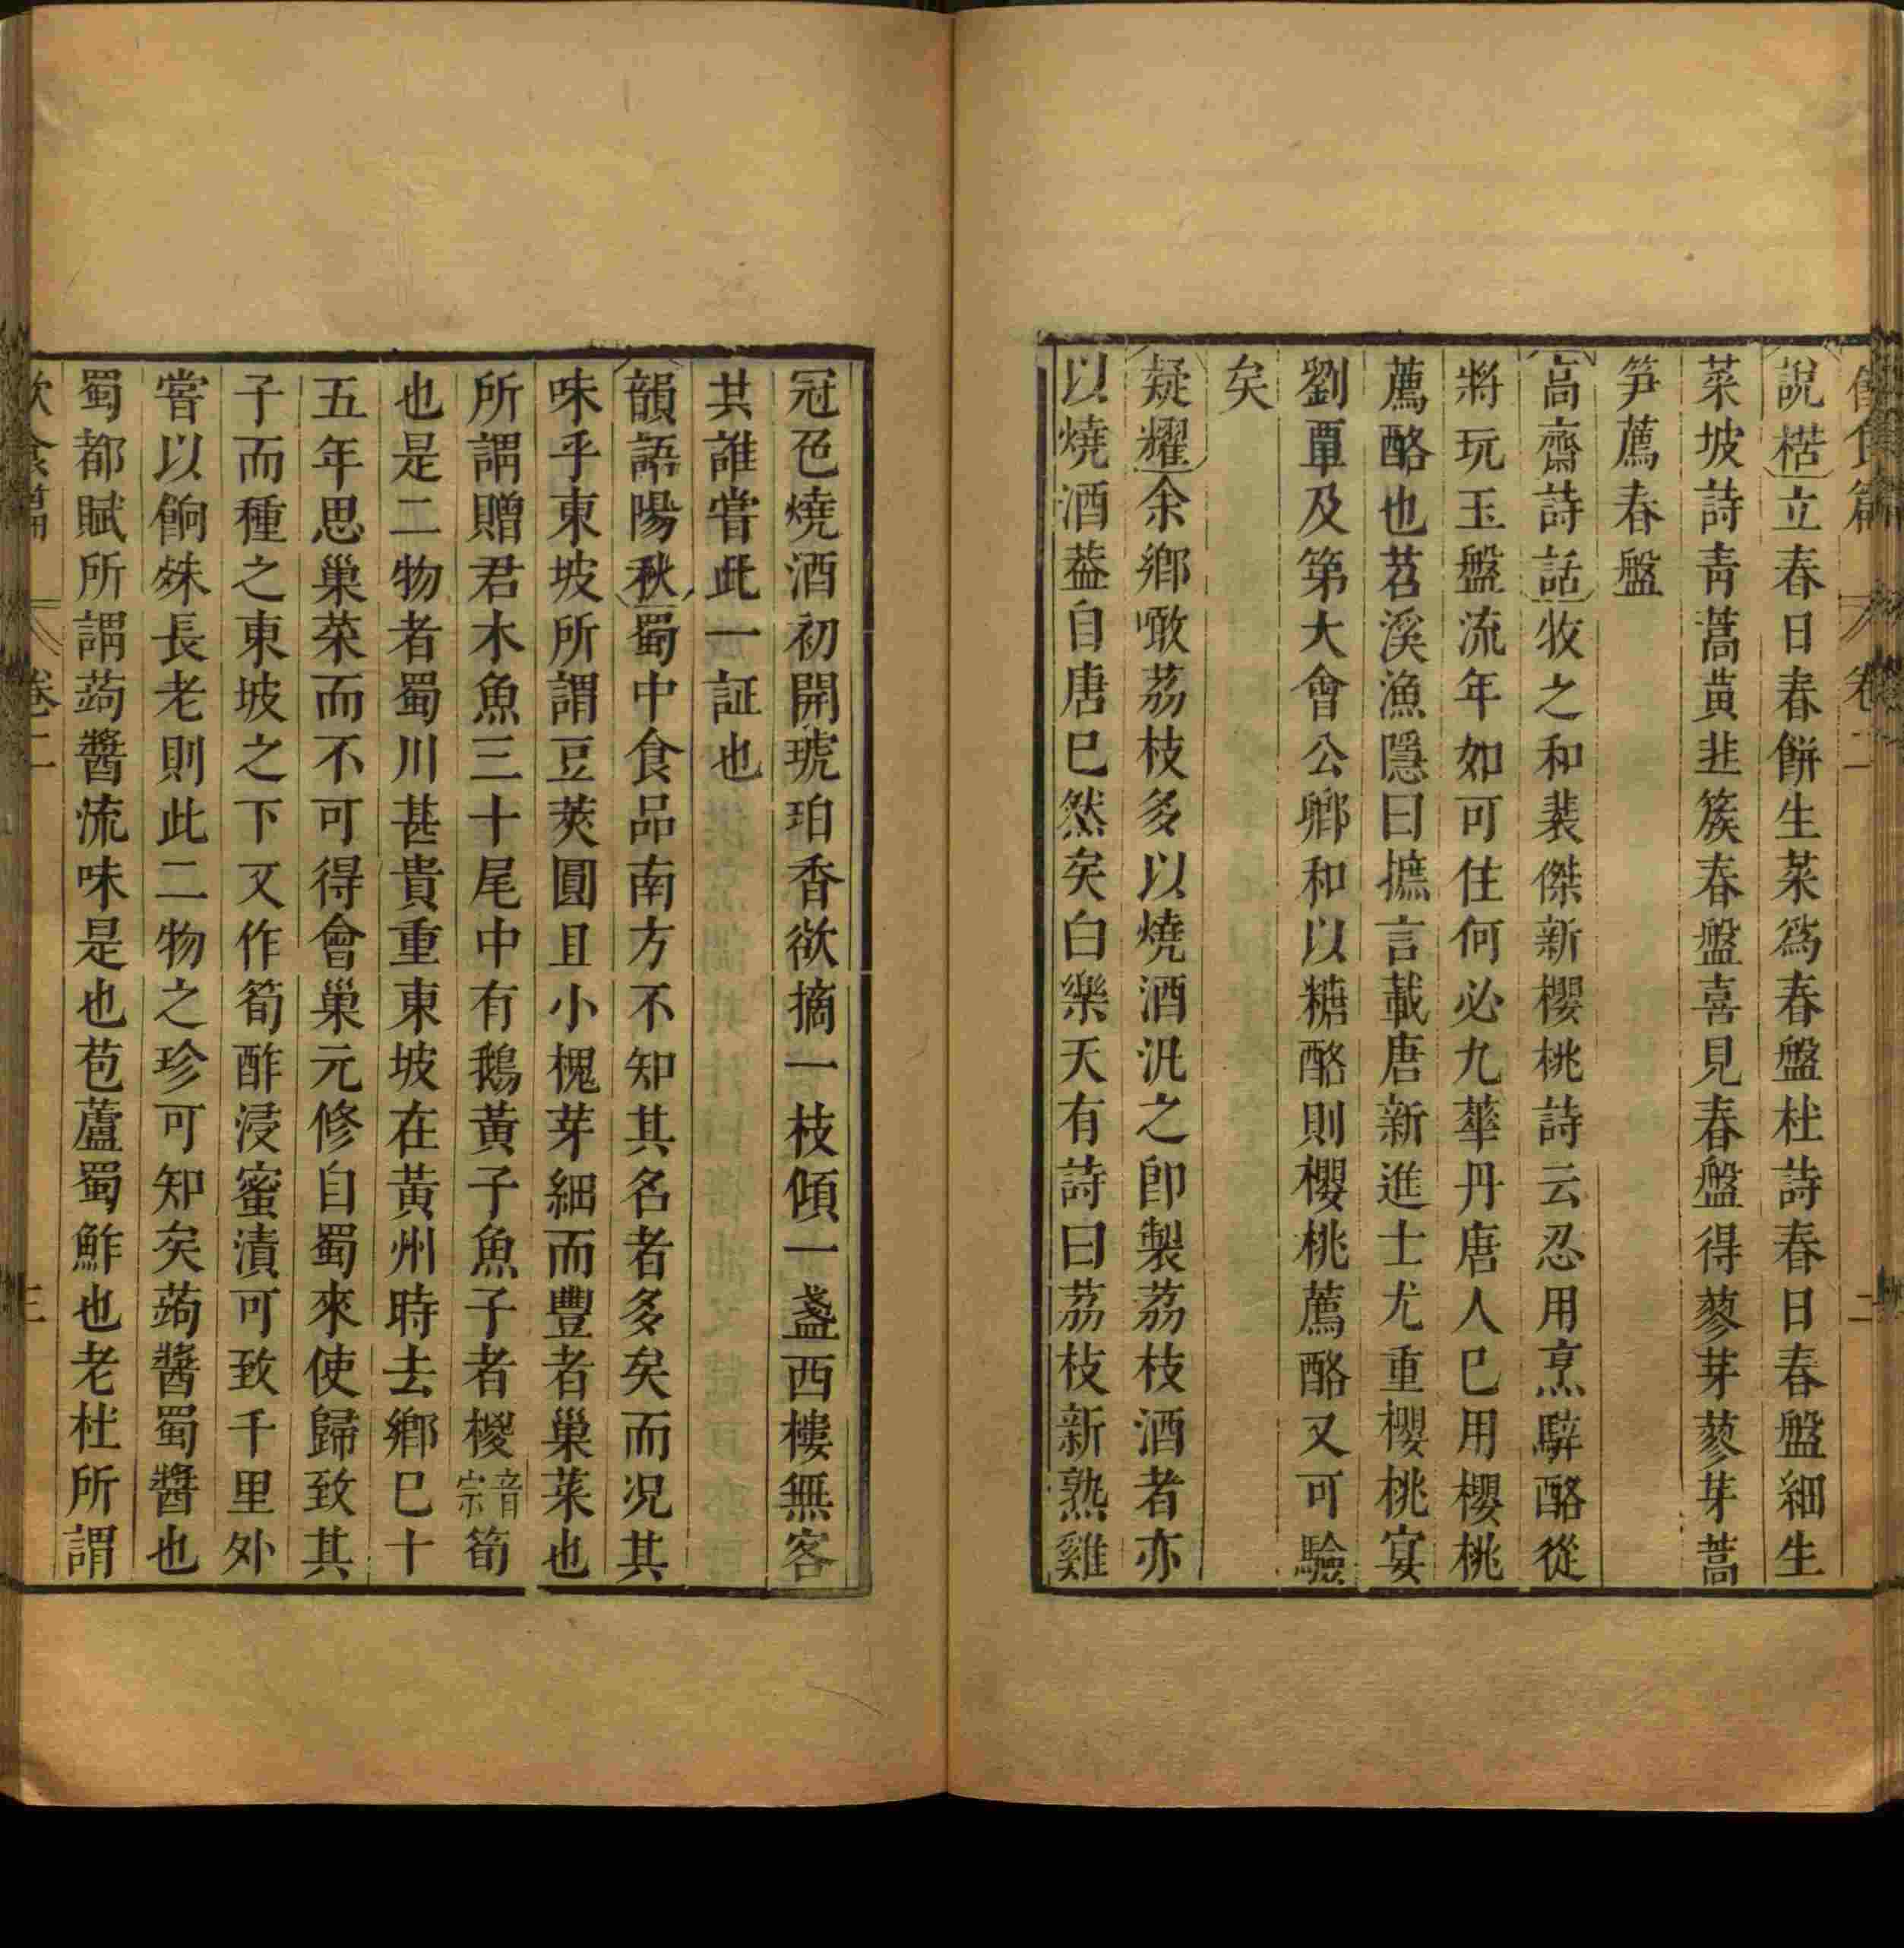 飲食篇 卷二 二
說楛立春日春餅生菜爲春盤杜詩春日春盤細生
菜坡詩靑蒿黃韭簇春盤喜見春盤得蓼芽蓼芽蒿
笋薦春盤
高齋詩話牧之和裴傑新櫻桃詩云忍用烹騂酪從
將玩玉盤流年如可住何必九華丹唐人巳用櫻桃
薦酪也苕溪漁隱曰摭言載唐新進士尤重櫻桃宴
劉覃及第大會公鄉和以糖酪則櫻桃薦酪又可驗
矣
疑耀余鄉噉荔枝多以燒酒汎之卽製荔枝酒者亦
以燒酒葢自唐巳然矣白樂天有詩曰荔枝新熟雞
冠色燒酒初開琥珀香欲摘一枝傾一盞西樓無客
共誰嘗此一証也
韻語陽秋蜀中食品南方不知其名者多矣而况其
味乎東坡所謂豆莢圓且小槐芽細而豐者巢菜也
所謂贈君木魚三十尾中有鵝黃子魚子者椶音宗筍
也是二物者蜀川甚貴重東坡在黃州時去鄉巳十
五年思巢菜而不可得會巢元修自蜀來使歸致其
子而種之東坡之下又作筍酢浸蜜漬可致千里外
嘗以餉殊長老則此二物之珍可知矣蒟醬蜀醬也
蜀都賦所謂蒟醬流味是也苞蘆蜀鮓也老杜所謂
飲食篇 卷二 三